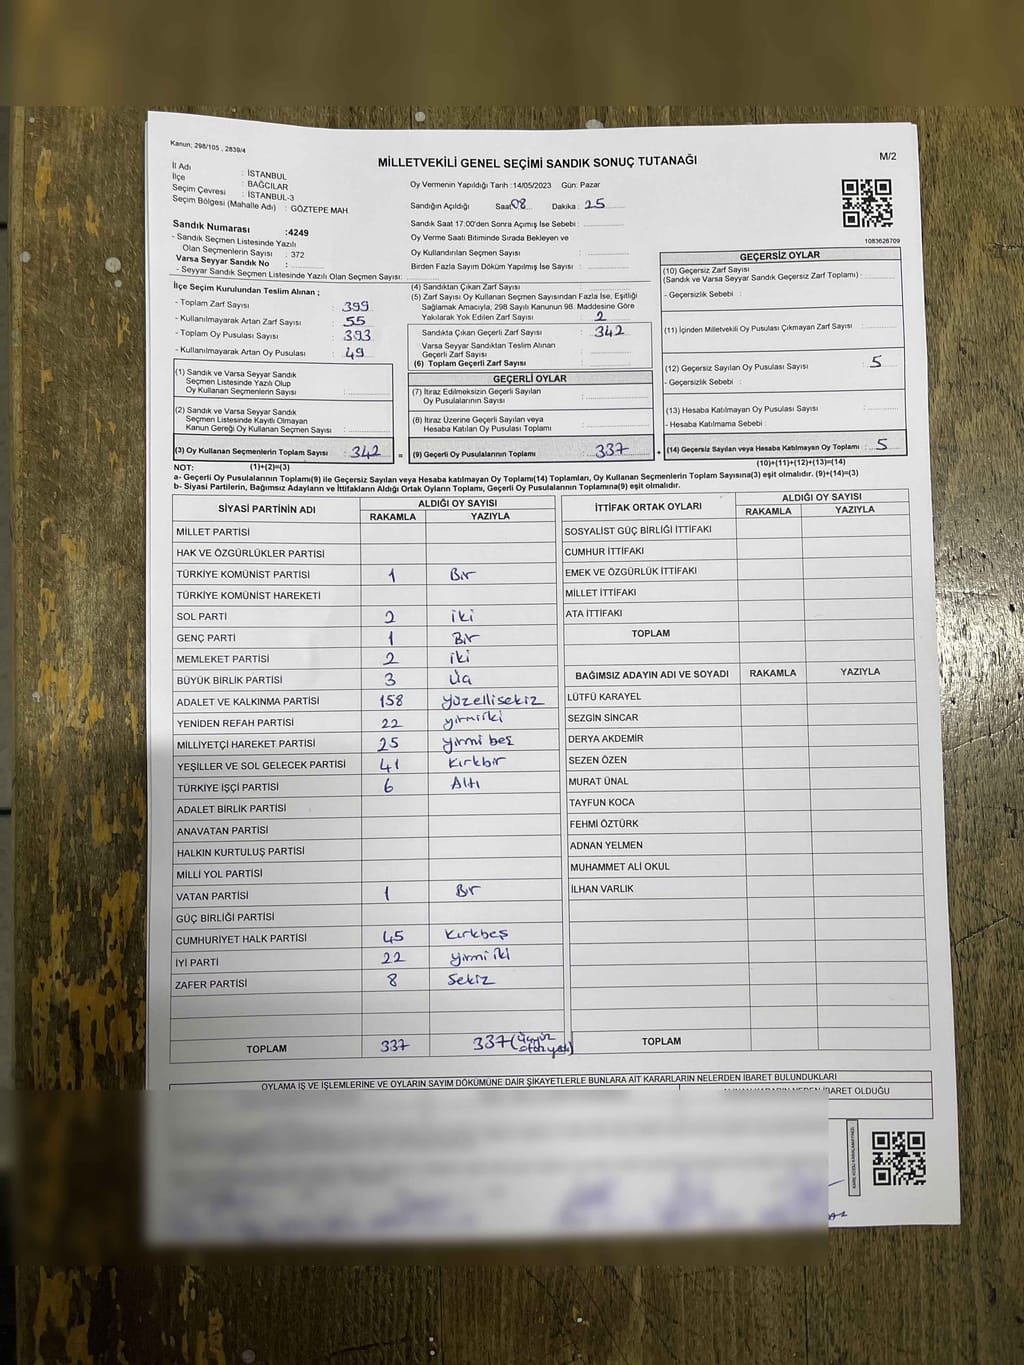 Kanun; 298/105 , 2839/4
MİLLETVEKİLİ GENEL SEÇİMİ SANDIK SONUÇ TUTANAĞI
M/2
İl Adı : İSTANBUL
İlçe : BAĞCILAR
Seçim Çevresi : İSTANBUL-3
Seçim Bölgesi (Mahalle Adı) : GÖZTEPE MAH.
Oy Vermenin Yapıldığı Tarih :14/05/2023 Gün: Pazar
Sandığın Açıldığı Saat: 08 Dakika : 25
Sandık Saat 17:00'den Sonra Açımış İse Sebebi :
Oy Verme Saati Bitiminde Sırada Bekleyen ve
Oy Kullandıran Seçmen Sayısı :
Birden Fazla Sayım Döküm Yapılmış İse Sayısı :
1083626709
Sandık Numarası :4249
- Sandık Seçmen Listesinde Yazılı
Olan Seçmenlerin Sayısı : 372
Varsa Seyyar Sandık No :
- Seyyar Sandık Seçmen Listesinde Yazılı Olan Seçmen Sayısı:
İlçe Seçim Kurulundan Teslim Alınan ;
- Toplam Zarf Sayısı : 399
- Kullanılmayarak Artan Zarf Sayısı : 55
- Toplam Oy Pusulası Sayısı : 393
- Kullanılmayarak Artan Oy Pusulası : 49
(1) Sandık ve Varsa Seyyar Sandık
Seçmen Listesinde Yazılı Olup
Oy Kullanan Seçmen Sayısı :
(2) Sandık ve Varsa Seyyar Sandık
Seçmen Listesinde Kayıtlı Olmayan
Kanun Gereği Oy Kullanan Seçmen Sayısı :
(3) Oy Kullanan Seçmenlerin Toplam Sayısı : 342
(4) Sandıktan Çıkan Zarf Sayısı :
(5) Zarf Sayısı Oy Kullanan Seçmen Sayısından Fazla İse, Eşitliği
Sağlamak Amacıyla, 298 Sayılı Kanunun 98. Maddesine Göre
Yakılarak Yok Edilen Zarf Sayısı : 2
Sandıkta Çıkan Geçerli Zarf Sayısı : 342
Varsa Seyyar Sandıktan Teslim Alınan
Geçerli Zarf Sayısı :
(6) Toplam Geçerli Zarf Sayısı :
GEÇERLİ OYLAR
(7) İtiraz Edilmeksizin Geçerli Sayılan
Oy Pusulalarının Sayısı :
(8) İtiraz Üzerine Geçerli Sayılan veya
Hesaba Katılan Oy Pusulası Toplamı :
= (9) Geçerli Oy Pusulalarının Toplamı : 337
GEÇERSİZ OYLAR
(10) Geçersiz Zarf Sayısı
(Sandık ve Varsa Seyyar Sandık Geçersiz Zarf Toplamı) :
- Geçersizlik Sebebi :
(11) İçinden Milletvekili Oy Pusulası Çıkmayan Zarf Sayısı :
(12) Geçersiz Sayılan Oy Pusulası Sayısı : 5
- Geçersizlik Sebebi :
(13) Hesaba Katılmayan Oy Pusulası Sayısı :
- Hesaba Katılmama Sebebi :
+ (14) Geçersiz Sayılan veya Hesaba Katılmayan Oy Toplamı : 5
NOT: (1)+(2)=(3)
(10)+(11)+(12)+(13)=(14)
a- Geçerli Oy Pusulalarının Toplamı(9) ile Geçersiz Sayılan veya Hesaba katılmayan Oy Toplamı(14) Toplamları, Oy Kullanan Seçmenlerin Toplam Sayısına(3) eşit olmalıdır. (9)+(14)=(3)
b- Siyasi Partilerin, Bağımsız Adayların ve İttifakların Aldığı Ortak Oyların Toplamı, Geçerli Oy Pusulalarının Toplamına(9) eşit olmalıdır.
SİYASİ PARTİNİN ADI ALDIĞI OY SAYISI
RAKAMLA YAZIYLA
MİLLET PARTİSİ
HAK VE ÖZGÜRLÜKLER PARTİSİ
TÜRKİYE KOMÜNİST PARTİSİ 1 Bir
TÜRKİYE KOMÜNİST HAREKETİ
SOL PARTİ 2 iki
GENÇ PARTİ 1 Bir
MEMLEKET PARTİSİ 2 iki
BÜYÜK BİRLİK PARTİSİ 3 Üç
ADALET VE KALKINMA PARTİSİ 158 yüzellisekiz
YENİDEN REFAH PARTİSİ 22 yirmiiki
MİLLİYETÇİ HAREKET PARTİSİ 25 yirmi beş
YEŞİLLER VE SOL GELECEK PARTİSİ 41 Kırkbir
TÜRKİYE İŞÇİ PARTİSİ 6 Altı
ADALET BİRLİK PARTİSİ
ANAVATAN PARTİSİ
HALKIN KURTULUŞ PARTİSİ
MİLLİ YOL PARTİSİ
VATAN PARTİSİ 1 Bir
GÜÇ BİRLİĞİ PARTİSİ
CUMHURİYET HALK PARTİSİ 45 Kırkbeş
İYİ PARTİ 22 yirmi iki
ZAFER PARTİSİ 8 Sekiz
TOPLAM 337 337 (Üçyüz otuzyedi)
İTTİFAK ORTAK OYLARI ALDIĞI OY SAYISI
RAKAMLA YAZIYLA
SOSYALİST GÜÇ BİRLİĞİ İTTİFAKI
CUMHUR İTTİFAKI
EMEK VE ÖZGÜRLÜK İTTİFAKI
MİLLET İTTİFAKI
ATA İTTİFAKI
TOPLAM
BAĞIMSIZ ADAYIN ADI VE SOYADI RAKAMLA YAZIYLA
LÜTFÜ KARAYEL
SEZGİN SİNCAR
DERYA AKDEMİR
SEZEN ÖZEN
MURAT ÜNAL
TAYFUN KOCA
FEHMİ ÖZTÜRK
ADNAN YELMEN
MUHAMMET ALİ OKUL
İLHAN VARLIK
TOPLAM
OYLAMA İŞ VE İŞLEMLERİNE VE OYLARIN SAYIM DÖKÜMÜNE DAİR ŞİKAYETLERLE BUNLARA AİT KARARLARIN NELERDEN İBARET BULUNDUKLARI
İBARET OLDUĞU